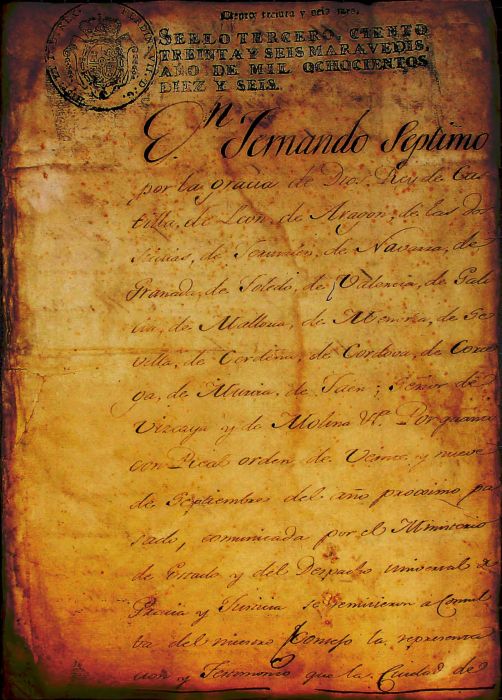 Ciento treinta y seis mrs.
SELLO TERCERO, CIENTO
TREINTA Y SEIS MARAVEDIS,
AÑO DE MIL OCHOCIENTOS
DIEZ Y SEIS.
Dn Fernando Septimo
por la gracia de Dios Rey de Cas
tilla, de Leon, de Aragon, de las dos
Sicilias, de Jerusalen, de Navarra, de
Granada, de Toledo, de Valencia, de Gali
cia, de Mallorca, de Menorca, de Se
villa, de Cerdeña, de Cordova, de Corce
ga, de Murcia, de Jaen, Señor de
Vizcaya y de Molina &a. Por quanto
con Real orden de Veinte y nueve
de Septiembre del año proximo pa
sado, comunicada por el Ministerio
de Estado y del Despacho universal de
Gracia y Justicia se remitieron a Consul
ta del nuestro Consejo la representa
cion y Testimonio que la Ciudad de